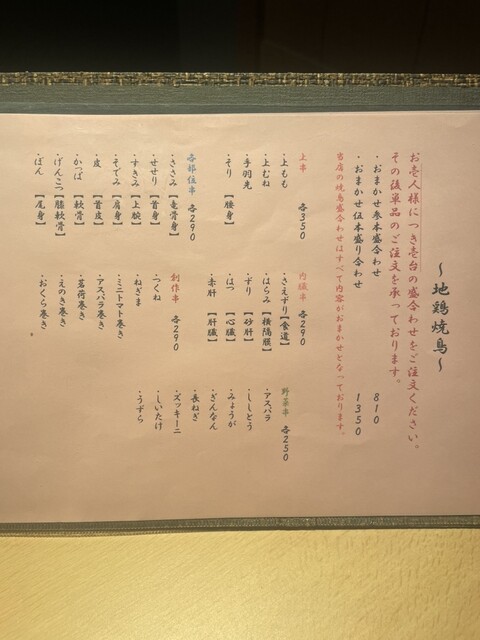 ～地鶏焼鳥～
お壱人様につき壱台の盛合わせをご注文ください。
その後単品のご注文を承っております。
・おまかせ参本盛り合わせ 810
・おまかせ伍本盛り合わせ 1350
当店の焼鳥盛合わせはすべて内容がおまかせとなっております。
上串 各350
・上もも
・上むね
・手羽先
・そり【腰身】
各部位串 各290
・ささみ【竜骨身】
・せせり【首身】
・すきみ【上腕】
・そでみ【肩身】
・皮【首皮】
・かっぱ【軟骨】
・げんこつ【膝軟骨】
・ぼん【尾身】
内臓串 各290
・さえずり【食道】
・はらみ【横隔膜】
・ずり【砂肝】
・はつ【心臓】
・赤肝【肝臓】
創作串 各290
・つくね
・ねぎま
・ミニトマト巻き
・アスパラ巻き
・茗荷巻き
・えのき巻き
・おくら巻き
野菜串 各250
・アスパラ
・ししとう
・みょうが
・ぎんなん
・長ねぎ
・ズッキーニ
・しいたけ
・うずら